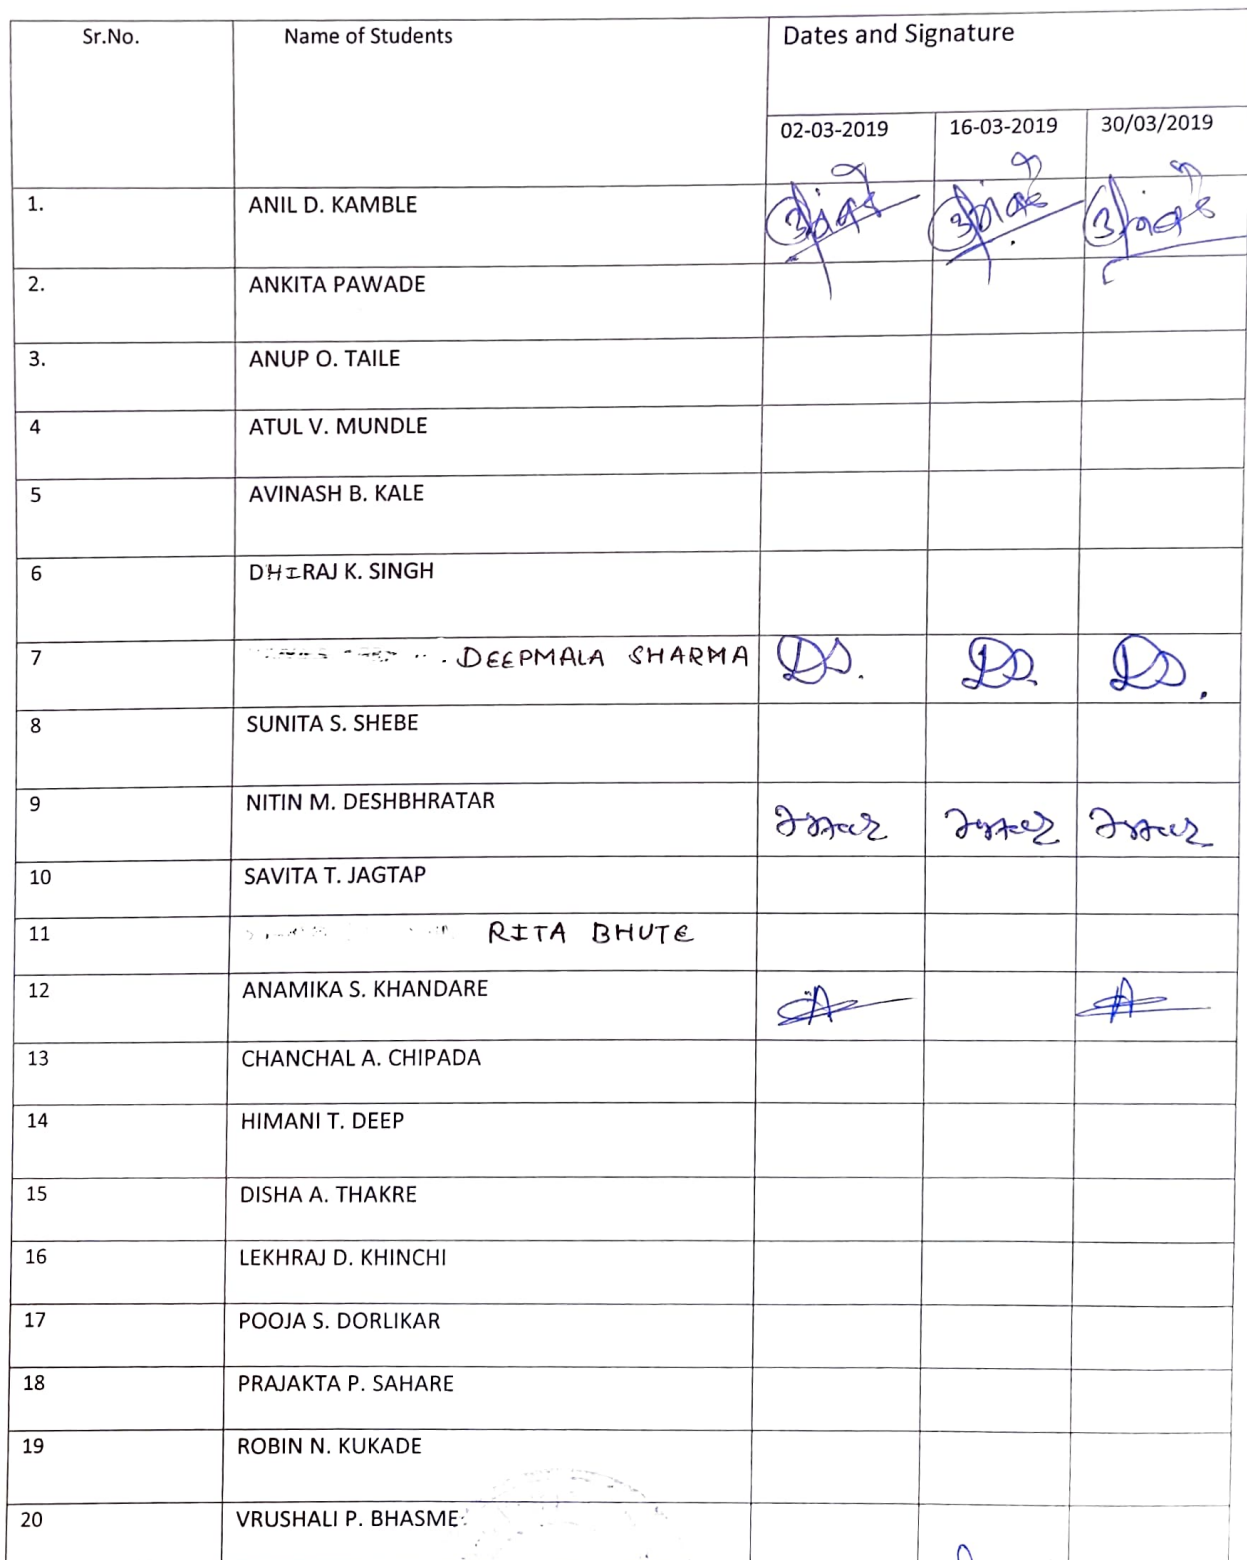 Sr.No. Name of Students Dates and Signature
02-03-2019 16-03-2019 30/03/2019
1. ANIL D. KAMBLE
2. ANKITA PAWADE
3. ANUP O. TAILE
4 ATUL V. MUNDLE
5 AVINASH B. KALE
6 DHIRAJ K. SINGH
7 DEEPMALA SHARMA DS. DS. DS.
8 SUNITA S. SHEBE
9 NITIN M. DESHBHRATAR
10 SAVITA T. JAGTAP
11 RITA BHUTE
12 ANAMIKA S. KHANDARE
13 CHANCHAL A. CHIPADA
14 HIMANI T. DEEP
15 DISHA A. THAKRE
16 LEKHRAJ D. KHINCHI
17 POOJA S. DORLIKAR
18 PRAJAKTA P. SAHARE
19 ROBIN N. KUKADE
20 VRUSHALI P. BHASME